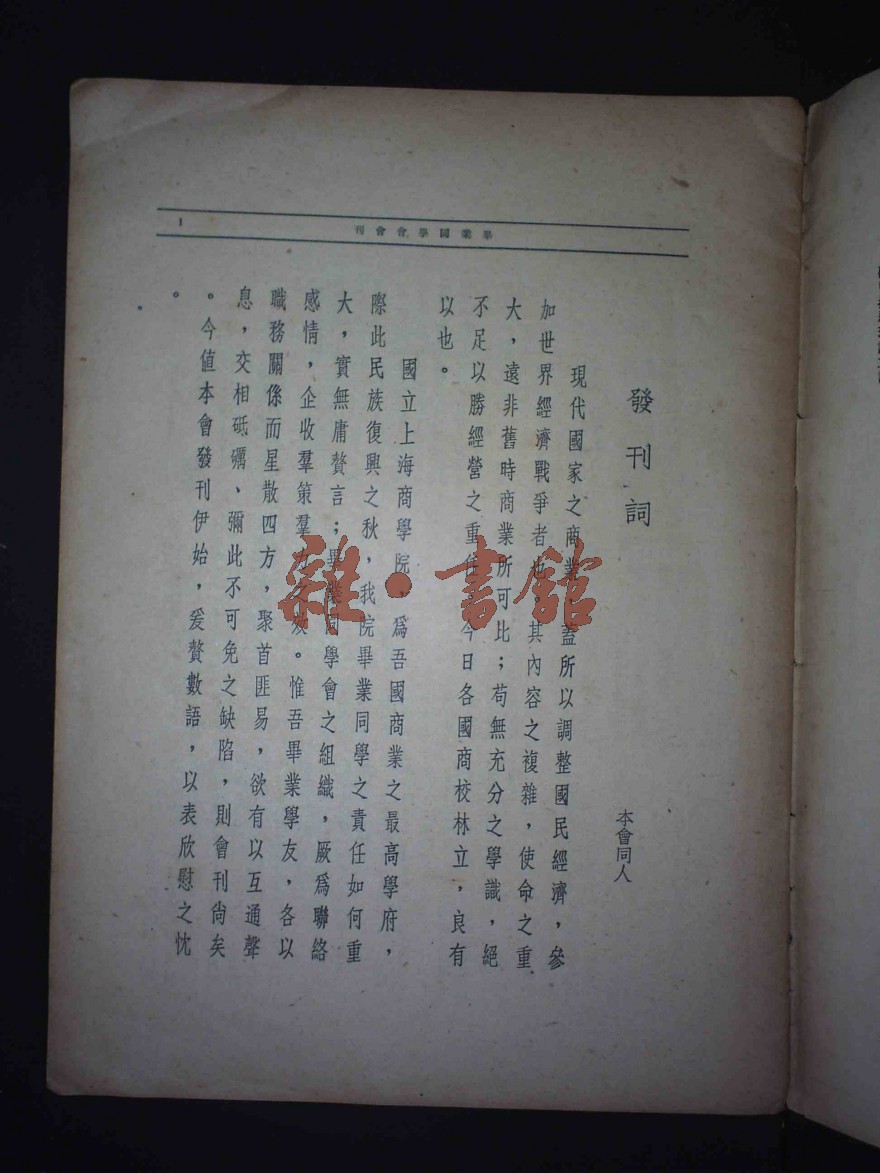 畢業同學會會刊
1
發刊詞
本會同人
現代國家之商業蓋所以調整國民經濟，參
加世界經濟戰爭者也其內容之複雜，使命之重
大，遠非舊時商業所可比；苟無充分之學識，絕
不足以勝經營之重任今日各國商校林立，良有
以也。
國立上海商學院，爲吾國商業之最高學府，
際此民族復興之秋，我院畢業同學之責任如何重
大，實無庸贅言；畢業同學會之組織，厥爲聯絡
感情，企收羣策羣力之效。惟吾畢業學友，各以
職務關係而星散四方，聚首匪易，欲有以互通聲
息，交相砥礪、彌此不可免之缺陷，則會刊尚矣
。今值本會發刊伊始，爰贅數語，以表欣慰之忱
。
雜·書館